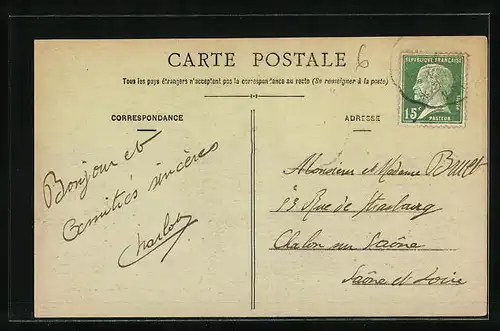 CARTE POSTALE
6
Tous les pays étrangers n'acceptent pas la correspondance au recto (Se renseigner à la poste)
REPUBLIQUE FRANÇAISE
15c
POSTES
PASTEUR
CORRESPONDANCE
ADRESSE
Bonjour et
amitiés sincères
Charlot
Monsieur et Madame
Rue de Strasbourg
Chalon sur Saône
Saône et Loire